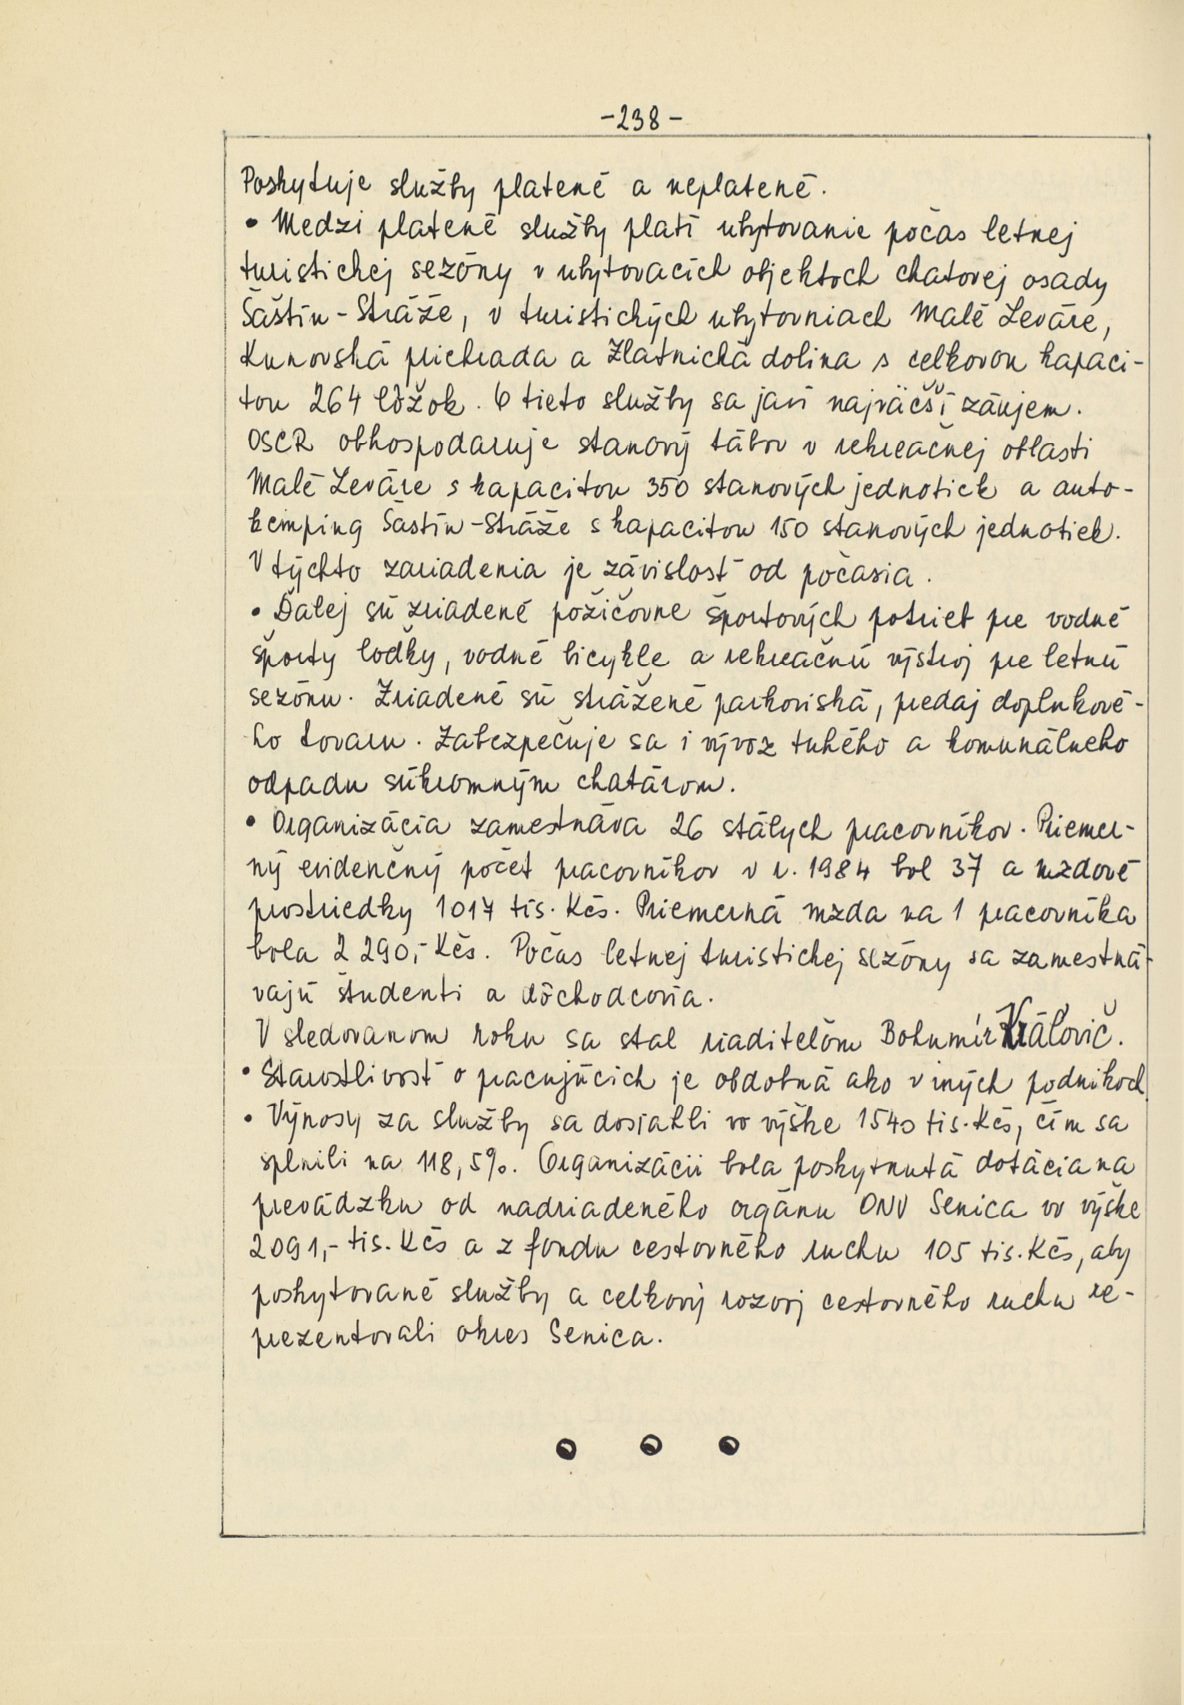 -238-
Poskytuje služby platené a neplatené.
• Medzi platené služby platí ubytovanie počas letnej
turistickej sezóny v ubytovacích objektoch chatovej osady
Šaštín-Stráže, v turistických ubytovniach Malé Leváre,
Kunovská priehrada a Zlatnická dolina s celkovou kapaci-
tou 264 lôžok. O tieto služby sa javí najväčší záujem.
OSCR obhospodaruje stanový tábor v rekreačnej oblasti
Malé Leváre s kapacitou 350 stanových jednotiek a auto-
kemping Šastín-Stráže s kapacitou 150 stanových jednotiek.
V týchto zariadenia je závislosť od počasia.
• Ďalej sú zriadené požičovne športových potrieb pre vodné
športy loďky, vodné bicykle a rekreačnú výstroj pre letnú
sezónu. Zriadené sú strážené parkoviská, predaj doplnkové-
ho tovaru. Zabezpečuje sa i vývoz tuhého a komunálneho
odpadu súkromným chatárom.
• Organizácia zamestnáva 26 stálych pracovníkov. Priemer-
ný evidenčný počet pracovníkov v r. 1984 bol 37 a mzdové
prostriedky 1017 tis. Kčs. Priemerná mzda na 1 pracovníka
bola 2 290,- Kčs. Počas letnej turistickej sezóny sa zamestná-
vajú študenti a dôchodcovia.
V sledovanom roku sa stal riaditeľom Bohumír Kráľovič.
• Starostlivosť o pracujúcich je obdobná ako v iných podnikoch
• Výnosy za služby sa dosiahli vo výške 1540 tis. Kčs, čím sa
splnili na 118,5%. Organizácii bola poskytnutá dotácia na
prevádzku od nadriadeného orgánu ONV Senica vo výške
2091,- tis. Kčs a z fondu cestovného ruchu 105 tis. Kčs, aby
poskytované služby a celkový rozvoj cestovného ruchu re-
prezentovali okres Senica.